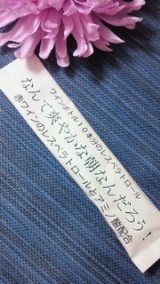 ワインボトル10本分のレスベラトロール
なんて爽やかな朝なんだろう!
赤ワインのレスベラトロールとアミノ酸配合